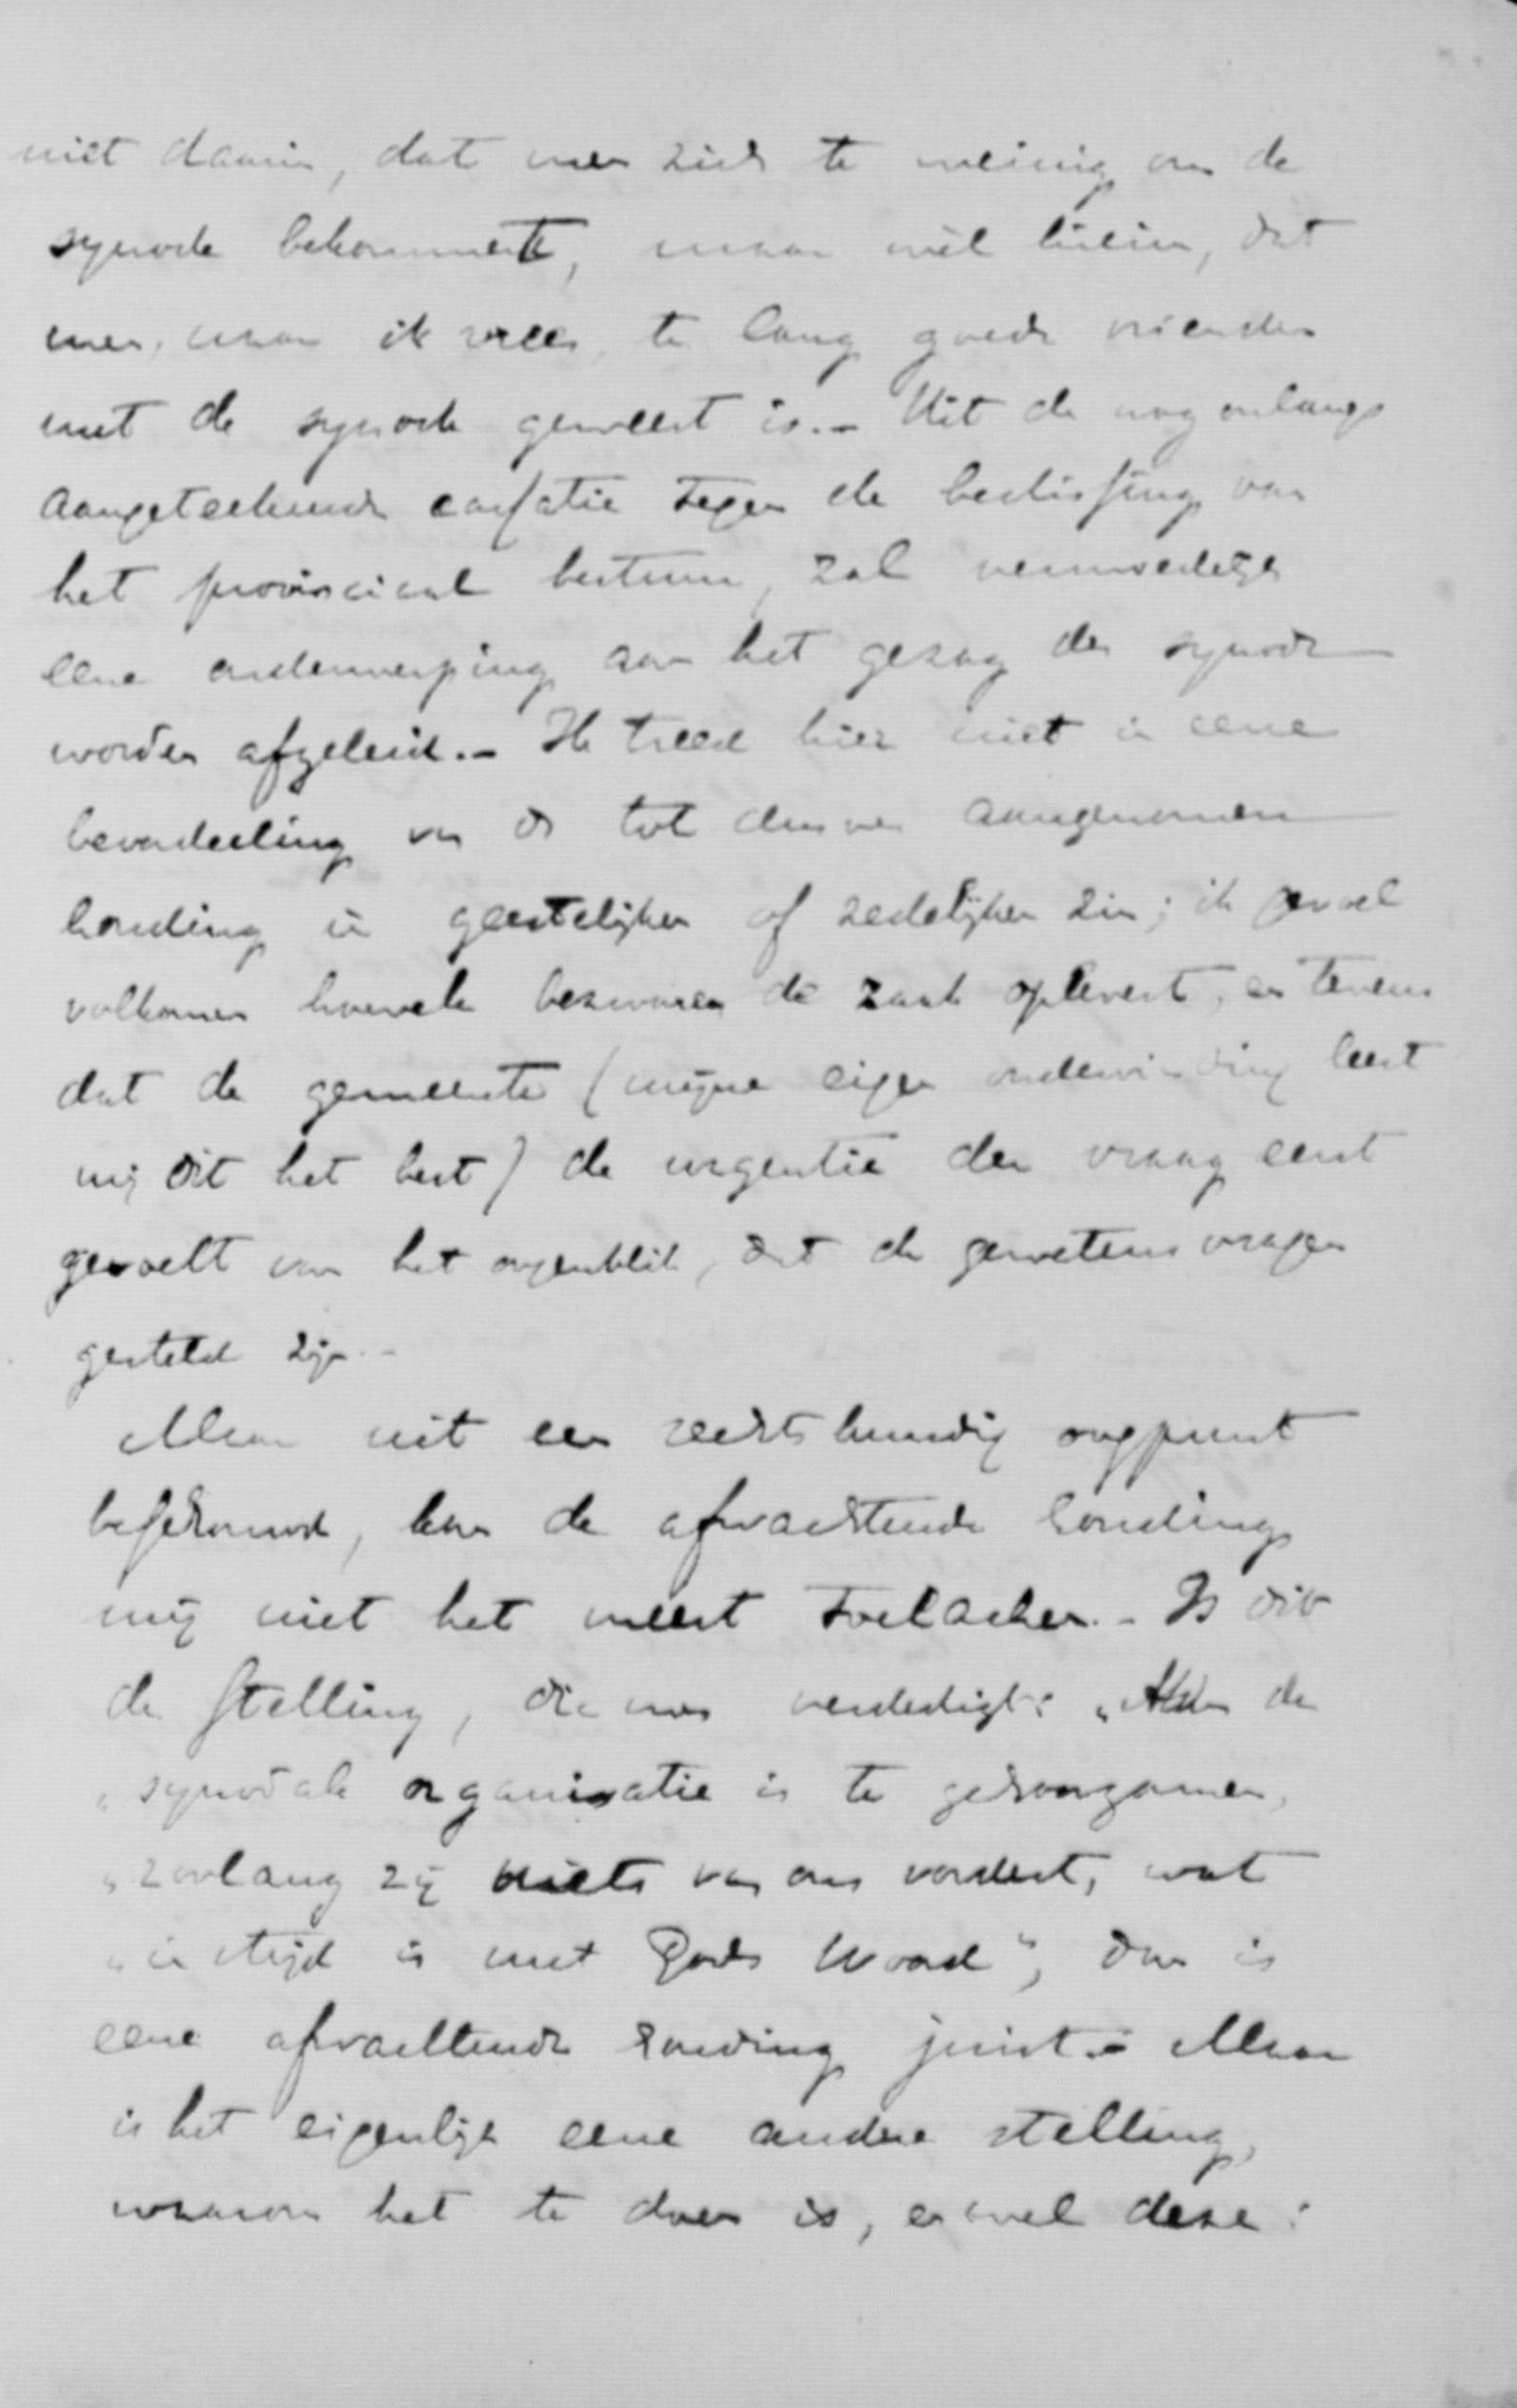 niet daarin, dat men zich te weinig om de
synode bekommerte, maar wel hierin, dat
men, naar ik vrees, te lang goede vrienden
met de synode geweest is.- Uit de nog onlangs
aangeteekende cassatie tegen de beslissing van
het provinciaal bestuur, zal vermoedelijk
eene onderwerping aan het gezag der synode
worden afgeleid.- Ik treed hier niet in eene
beoordeeling van de tot dusver aangenomen
houding in geestelijken of zedelijken zin; ik gevoel
volkomen hoevele bezwaren de zaak oplevert, en tevens
dat de gemeente (mijne eigen ondervinding leert
mij dit het best) de urgentie der vraag eerst
gevoelt van het oogenblik, dat de gewetensvragen
gesteld zijn.-
Maar uit een rechtskundig oogpunt
beschouwd, kan de afwachtende houding
mij niet het meest toelachen.- Is dit
de stelling, die men verdedigt: „Aan de
„synodale organisatie is te gehoorzamen,
„zoolang zij niets van ons vordert, wat
„in strijd is met Gods Woord", dan is
eene afwachtende houding juist.- Maar
is het eigenlijk eene andere stelling,
waarom het te doen is, en wel deze: